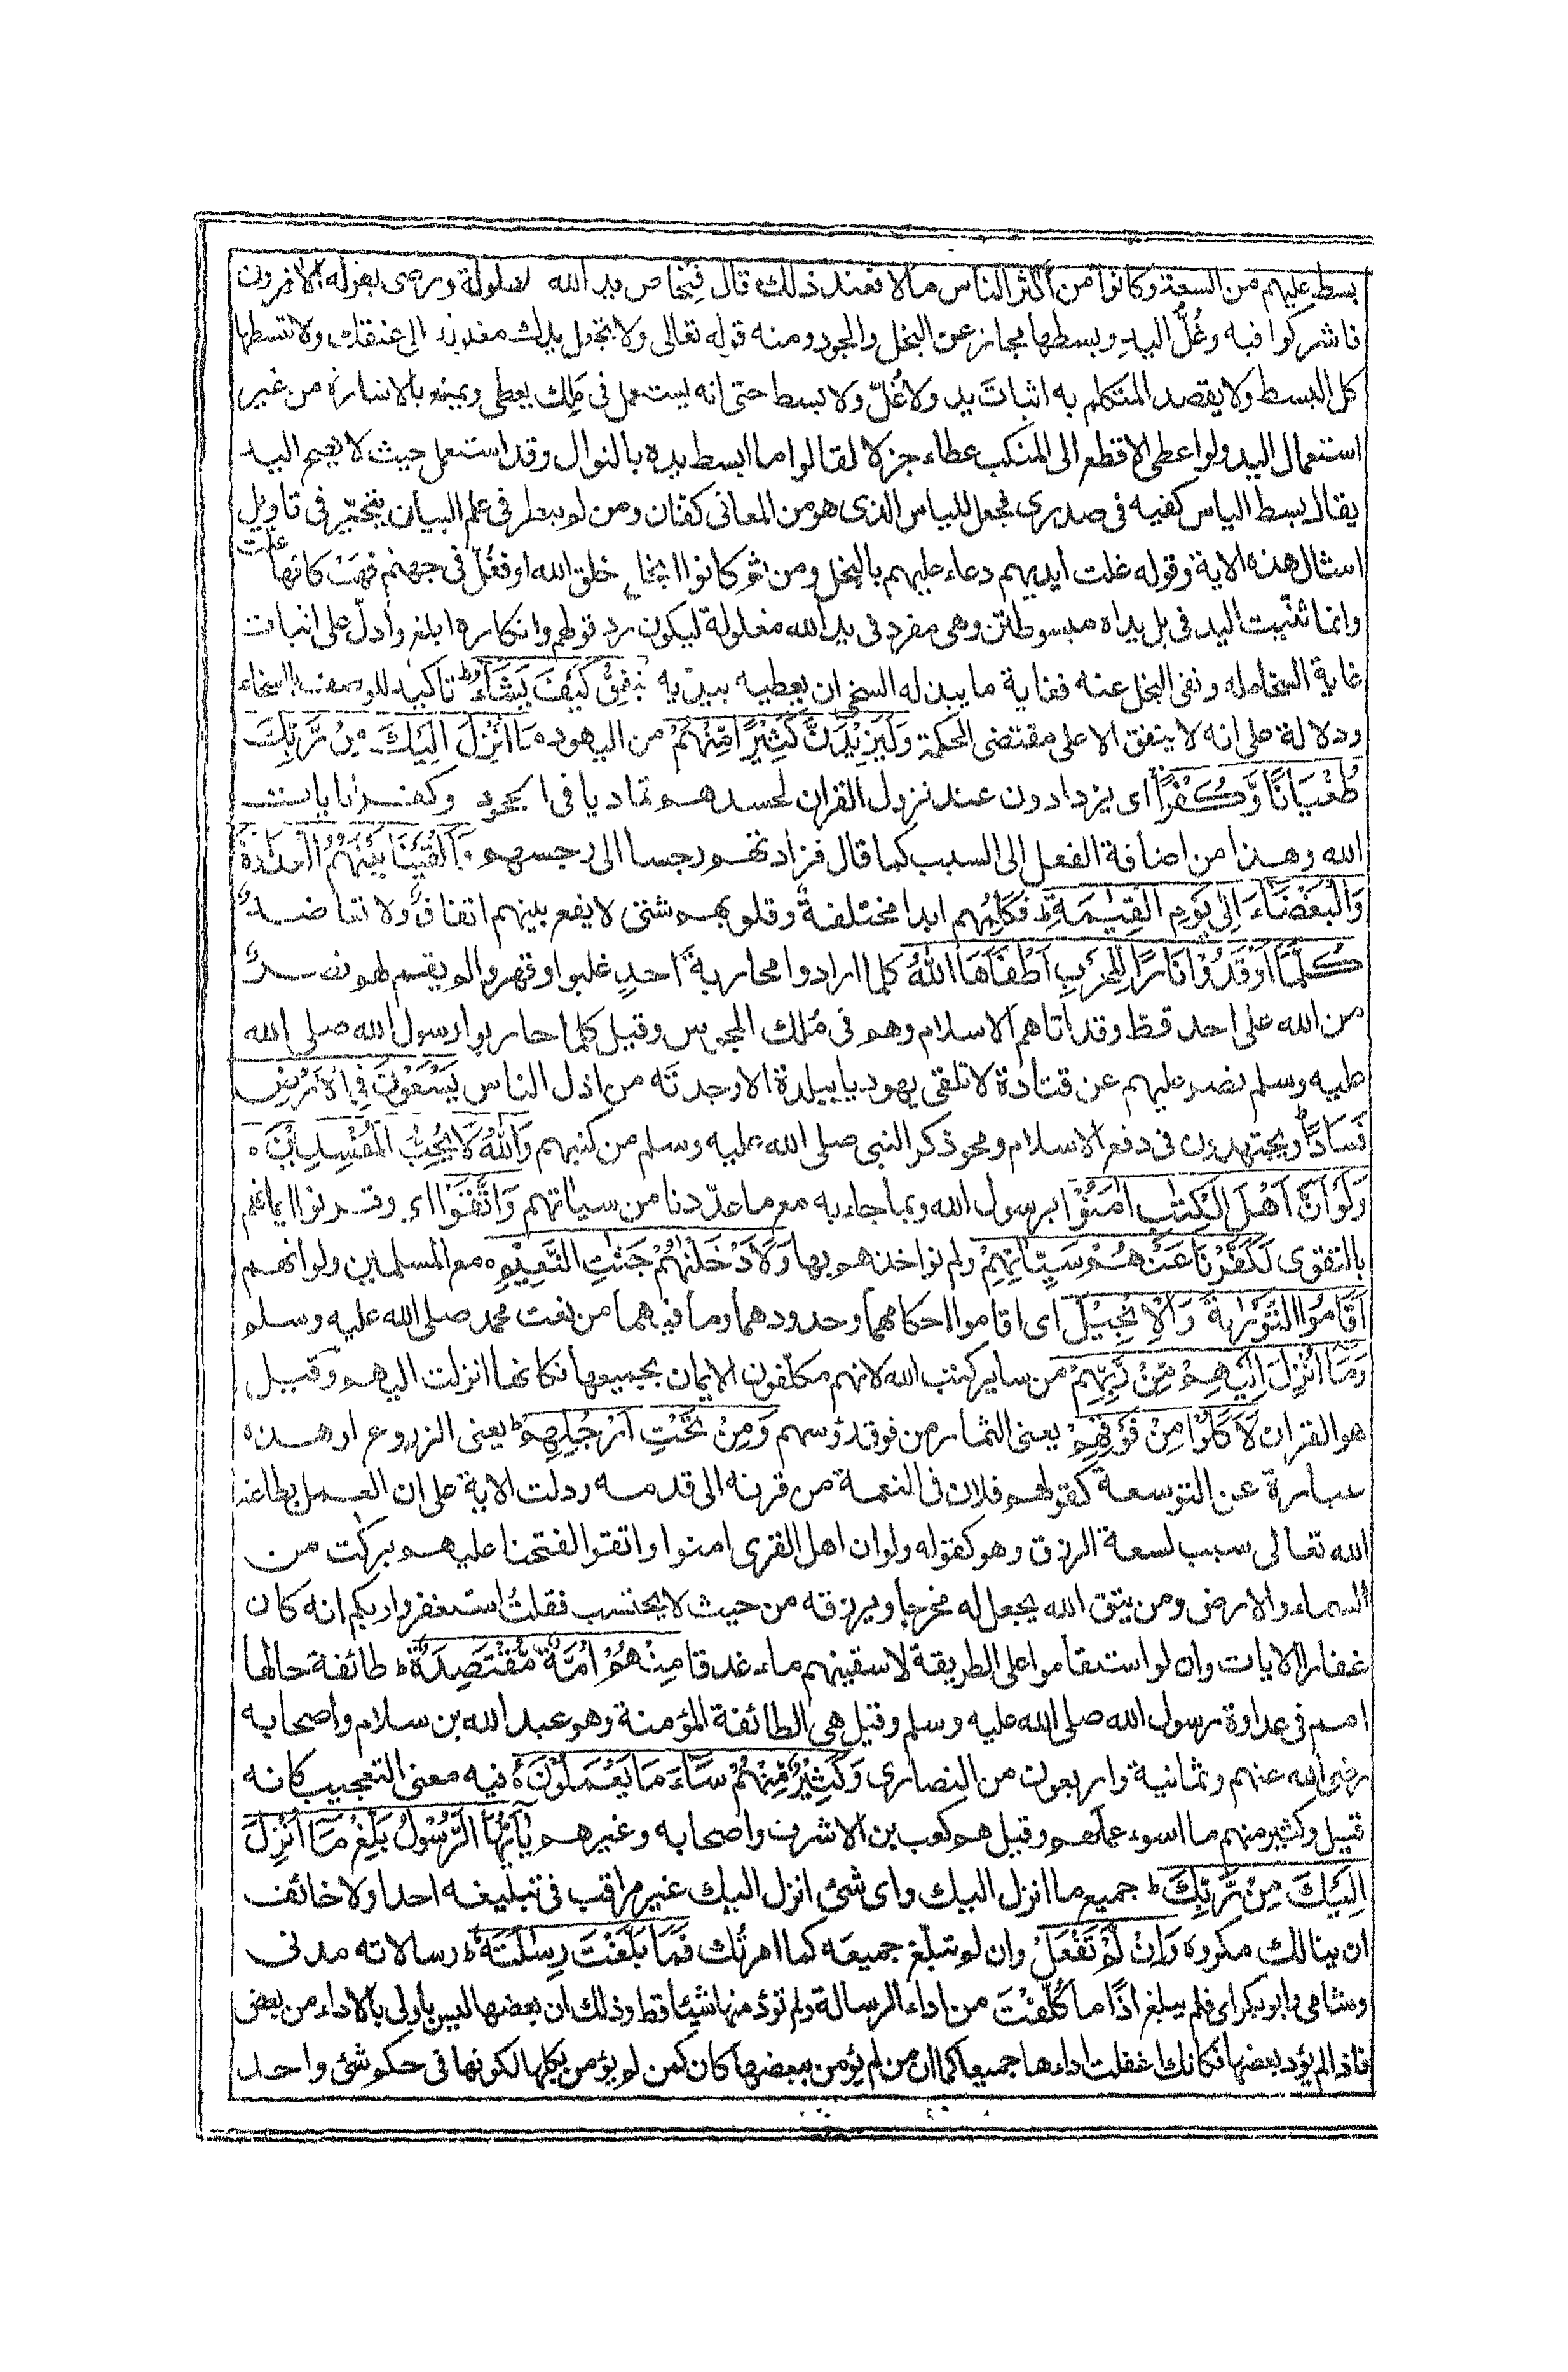 بسط عليهم من السعة وكانوا من أكثر الناس مالا فعند ذلك قال فنحاص يد الله مغلولة ورضى بقوله الآخرون
فاشركوا فيه وغُلُّ اليدِ وبسطها مجاز عن البخل والجود ومنه قوله تعالى ولا تجعل يدك مغلولة الى عنقك ولا تبسطها
كل البسط ولا يقصد المتكلم به اثبات يد ولا غُلّ ولا بسط حتى انه يستعمل فى مَلِك يعطى ويمنع بالاشارة من غير
استعمال اليد ولو اعطى الاقطع الى المنكب عطاء جزلا لقالوا ما ابسط يده بالنوال وقد استعمل حيث لا يصح اليد
يقال بسط الياس كفيه فى صدرى فجعل للياس الذى هو من المعانى كفان ومن لم ينظر فى علم البيان يتحيّر فى تاويل
امثال هذه الاية وقوله غلت ايديهم دعاء عليهم بالبخل ومن ثم كانوا ابخل خلق الله او تُغَلّ فى جهنم فهى كانها غلت
وانما ثنّيت اليد فى بل يداه مبسوطتن وهى مفرد فى يد الله مغلولة ليكون رد قولهم وانكاره ابلغ وادلّ على اثبات
غاية السخاء له ونفى البخل عنه فغاية ما يبذله السخى ان يعطيه بيديه يُنْفِقُ كَيْفَ يَشَآءُ ط تاكيد للوصف بالسخاء
ودلالة على انه لا ينفق الا على مقتضى الحكمة وَلَيَزِيْدَنَّ كَثِيْرًا مِّنْهُمْ من اليهود مَا اُنْزِلَ اِلَيْكَ مِنْ رَّبِّكَ
طُغْيَانًا وَّكُفْرًا اى يزدادون عند نزول القران لحسدهم تماديا فى الجحود وكفرا بايات
الله وهذا من اضافة الفعل الى السبب كما قال فزادتهم رجسا الى رجسهم وَاَلْقَيْنَا بَيْنَهُمُ الْعَدَاوَةَ
وَالْبَغْضَآءَ اِلٰى يَوْمِ الْقِيٰمَةِ ط فكلمهم ابدا مختلفة وقلوبهم شتى لا يقع بينهم اتفاق ولا تعاضد
كُلَّمَا اَوْقَدُوْا نَارًا لِّلْحَرْبِ اَطْفَاَهَا اللّٰهُ كلما ارادوا محاربة احدٍ غلبوا وقهروا لم يقم لهم نصر
من الله على احد قط وقد اتاهم الاسلام وهم فى مُلك المجوس وقيل كلما حاربوا رسول الله صلى الله
عليه وسلم نصر عليهم عن قتادة لا تلقى يهوديا ببلدة الا وجدته من اذل الناس يَسْعَوْنَ فِى الْاَرْضِ
فَسَادًا ط ويجتهدون فى دفع الاسلام ومحو ذكر النبى صلى الله عليه وسلم من كتبهم وَاللّٰهُ لَا يُحِبُّ الْمُفْسِدِيْنَ ه
وَلَوْ اَنَّ اَهْلَ الْكِتٰبِ اٰمَنُوْا برسول الله وبما جاء به مع ما عدّدنا من سياتهم وَاتَّقَوْا اى وقرنوا ايمانهم
بالتقوى لَكَفَّرْنَا عَنْهُمْ سَيِّاٰتِهِمْ ولم نؤاخذهم بها وَلَاَدْخَلْنٰهُمْ جَنّٰتِ النَّعِيْمِ ه مع المسلمين ولو انهم
اَقَامُوا التَّوْرٰىةَ وَالْاِنْجِيْلَ اى اقاموا احكامهما وحدودهما وما فيهما من نعت محمد صلى الله عليه وسلم
وَمَا اُنْزِلَ اِلَيْهِمْ مِّنْ رَّبِّهِمْ من ساير كتب الله لانهم مكلّفون الايمان بجميعها فكانها انزلت اليهم وقيل
هو القران لَاَكَلُوْا مِنْ فَوْقِهِمْ يعنى الثمار من فوق رؤسهم وَمِنْ تَحْتِ اَرْجُلِهِمْ ط يعنى الزروع او هذه
عبارة عن التوسعة كقولهم فلان فى النعمة من قرنه الى قدمه ودلت الاية على ان العمل بطاعة
الله تعالى سبب لسعة الرزق وهو كقوله ولو ان اهل القرى امنوا واتقوا لفتحنا عليهم بركت من
السماء والارض ومن يتق الله يجعل له مخرجا ويرزقه من حيث لا يحتسب فقلتُ استغفروا ربكم انه كان
غفارا الايات وان لو استقاموا على الطريقة لاسقينهم ماء غدقا مِنْهُمْ اُمَّةٌ مُّقْتَصِدَةٌ ط طائفة حالها
امم فى عداوة رسول الله صلى الله عليه وسلم وقيل هى الطائفة المؤمنة وهو عبد الله بن سلام واصحابه
رضى الله عنهم وثمانية واربعون من النصارى وَكَثِيْرٌ مِّنْهُمْ سَآءَ مَا يَعْمَلُوْنَ ه فيه معنى التعجيب كانه
قيل وكثير منهم ما اسوء عملهم وقيل هم كعب بن الاشرف واصحابه وغيرهم يٰاَيُّهَا الرَّسُوْلُ بَلِّغْ مَا اُنْزِلَ
اِلَيْكَ مِنْ رَّبِّكَ ط جميع ما انزل اليك واى شئ انزل اليك غير مراقب فى تبليغه احدا ولا خائف
ان ينالك مكروه وَاِنْ لَّمْ تَفْعَلْ وان لم تبلغ جميعه كما امرتُك فَمَا بَلَّغْتَ رِسٰلَتَهٗ ط رسالاته مدنى
وشامى وابو بكر اى فلم يبلغ اذًا ما كُلّفْتَ من اداء الرسالة ولم تؤد منها شيئا قط وذلك ان بعضها ليس باولى بالاداء من بعض
فاذا لم يؤد بعضها فكانك اغفلت اداءها جميعا كما ان من لم يؤمن ببعضها كان كمن لم يؤمن بكلها لكونها فى حكم شئ واحد